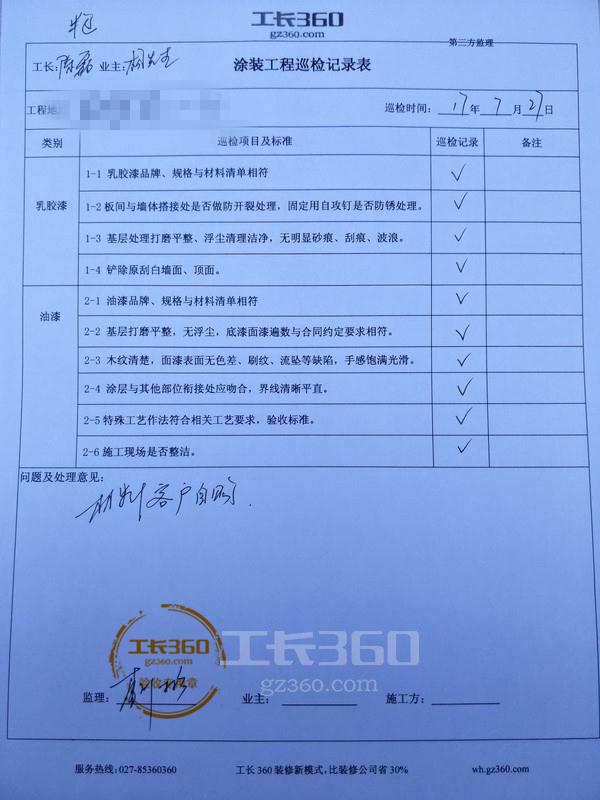 半包
工长360
gz360.com
第三方监理
工长：陈磊 业主：胡先生
涂装工程巡检记录表
工程地 巡检时间：17年7月27日
类别 巡检项目及标准 巡检记录 备注
乳胶漆
1-1 乳胶漆品牌、规格与材料清单相符 ✓
1-2 板间与墙体搭接处是否做防开裂处理，固定用自攻钉是否防锈处理。 ✓
1-3 基层处理打磨平整、浮尘清理洁净，无明显砂痕、刮痕、波浪。 ✓
1-4 铲除原刮白墙面、顶面。 ✓
油漆
2-1 油漆品牌、规格与材料清单相符 ✓
2-2 基层打磨平整，无浮尘，底漆面漆遍数与合同约定要求相符。 ✓
2-3 木纹清楚，面漆表面无色差、刷纹、流坠等缺陷，手感饱满光滑。 ✓
2-4 涂层与其他部位衔接处应吻合，界线清晰平直。 ✓
2-5 特殊工艺作法符合相关工艺要求，验收标准。 ✓
2-6 施工现场是否整洁。 ✓
问题及处理意见：
材料客户自购.
工长360
gz360.com
工长360
gz360.com
监理： 业主： 施工方：
服务热线：027-85360360 工长360装修新模式，比装修公司省30% wh.gz360.com